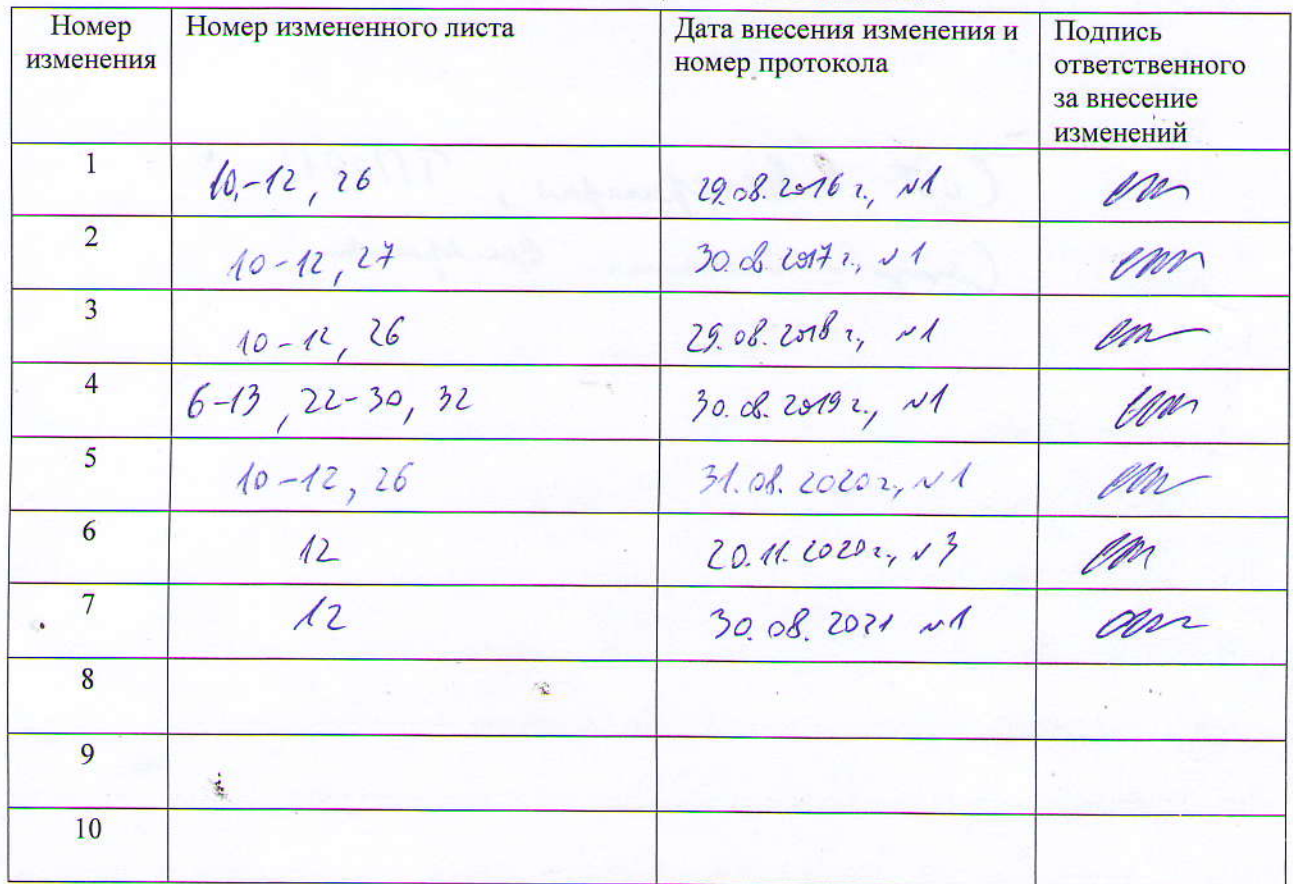 Номер изменения Номер измененного листа Дата внесения изменения и номер протокола Подпись ответственного за внесение изменений
1 10,-12, 26 29.08.2016 г., №1
2 10-12, 27 30.08.2017 г., №1
3 10-12, 26 29.08.2018 г., №1
4 6-13, 22-30, 32 30.08.2019 г., №1
5 10-12, 26 31.08.2020 г., №1
6 12 20.11.2020 г., №3
7 12 30.08.2021 №1
8
9
10